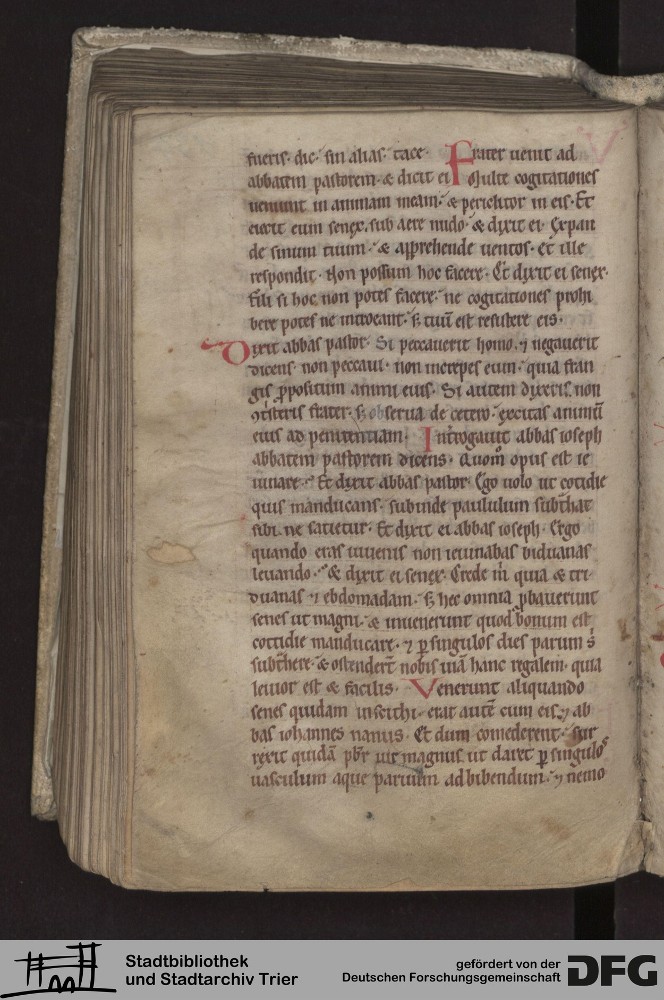 fueris. dic. sin alias. tace. Frater uenit ad
abbatem pastorem. & dicit ei Multe cogitationes
ueniunt in animam meam. & periclitor in eis. Et
eiecit eum senex. sub aere nudo. & dixit ei. Expan
de sinum tuum. & apprehende uentos. Et ille
respondit. Non possum hoc facere. Et dixit ei senex.
Fili si hoc non potes facere. ne cogitationes prohi
bere potes ne introeant. s; tuū est resistere eis.
Dixit abbas pastor. Si peccauerit homo. ⁊ negauerit
dicens. non peccaui. non increpes eum. quia fran
gis ꝓpositum animi eius. Si autem dixeris. non
ꝯtristeris frater. s; obserua de cetero. excitas animū
eius ad penitentiam. Interrogauit abbas ioseph
abbatem pastorem dicens. Quomͦ opus est ie
iunare. Et dixit abbas pastor. Ego uolo ut cotidie
quis manducans. subinde paululum subt̄hat
sibi. ne satietur. Et dixit ei abbas ioseph. Ergo
quando eras iuuenis non ieiunabas biduanas
leuando. & dixit ei senex. Crede m̄ quia & tri-
duanas ⁊ ebdomadam. s; hec omnia ꝓbauerunt
senes ut magni. & inuenerunt quod bonum est
cottidie manducare. ⁊ ꝑ singulos dies parum s̄
subt̄here. & ostender̄t nobis uiā hanc regalem. quia
leuior est & facilis. Venerunt aliquando
senes quidam in scithi. erat autē cum eis ⁊ ab
bas iohannes nanus. Et dum comederent. sur
rexit quidā pb̄r uir magnus. ut daret ꝑ singulos
uasculum aque paruum ad bibendum. ⁊ nemo
Stadtbibliothek
und Stadtarchiv Trier
gefördert von der
Deutschen Forschungsgemeinschaft
DFG